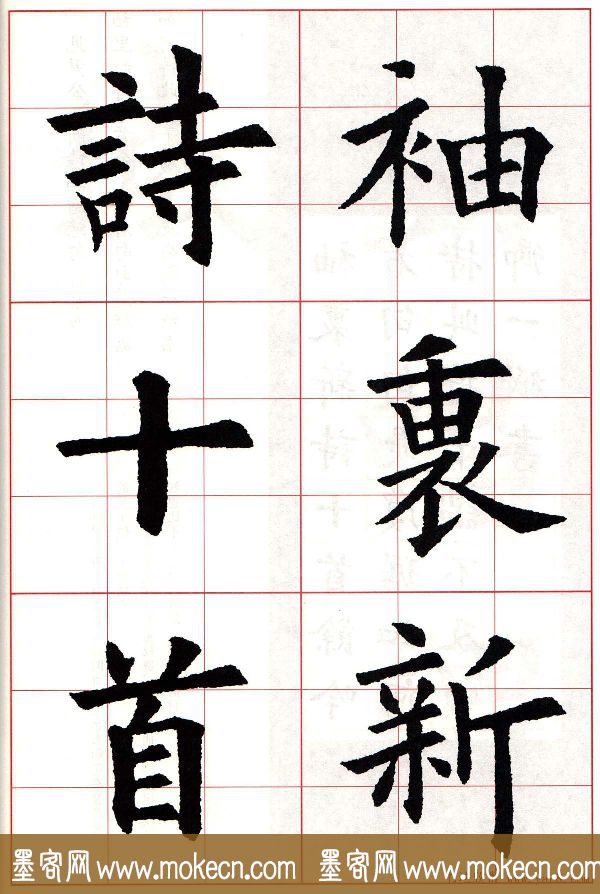 袖裏新
詩十首
墨客网 www.mokecn.com 墨客网 www.mokecn.com